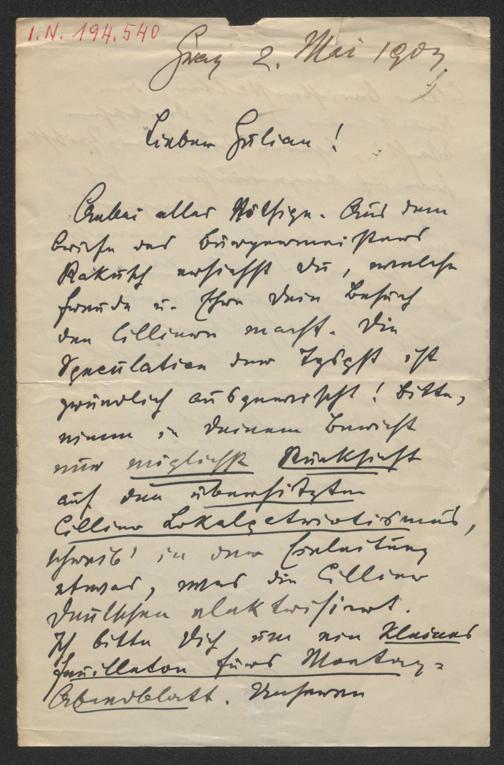 I.N. 194.540
Graz 2. Mai 1903
Lieber Julian!
Anbei alles Nöthige. Aus dem
Briefe des Bürgermeisters
Rakusch ersiehst du, welche
Freude u. Ehre Dein Besuch
den Cilliern macht. Die
Speculation der ist
gründlich ausgewischt! Bitte,
nimm in Deinem Bericht
nur möglichst Rücksicht
auf den überhitzten
Cillier Lokalpatriotismus,
schreib' in der Einleitung
etwas, was die Cillier
Deutschen elektrisiert.
Ich bitte Dich um ein kleines
Feuilleton fürs Montag-
Abendblatt. Unseren